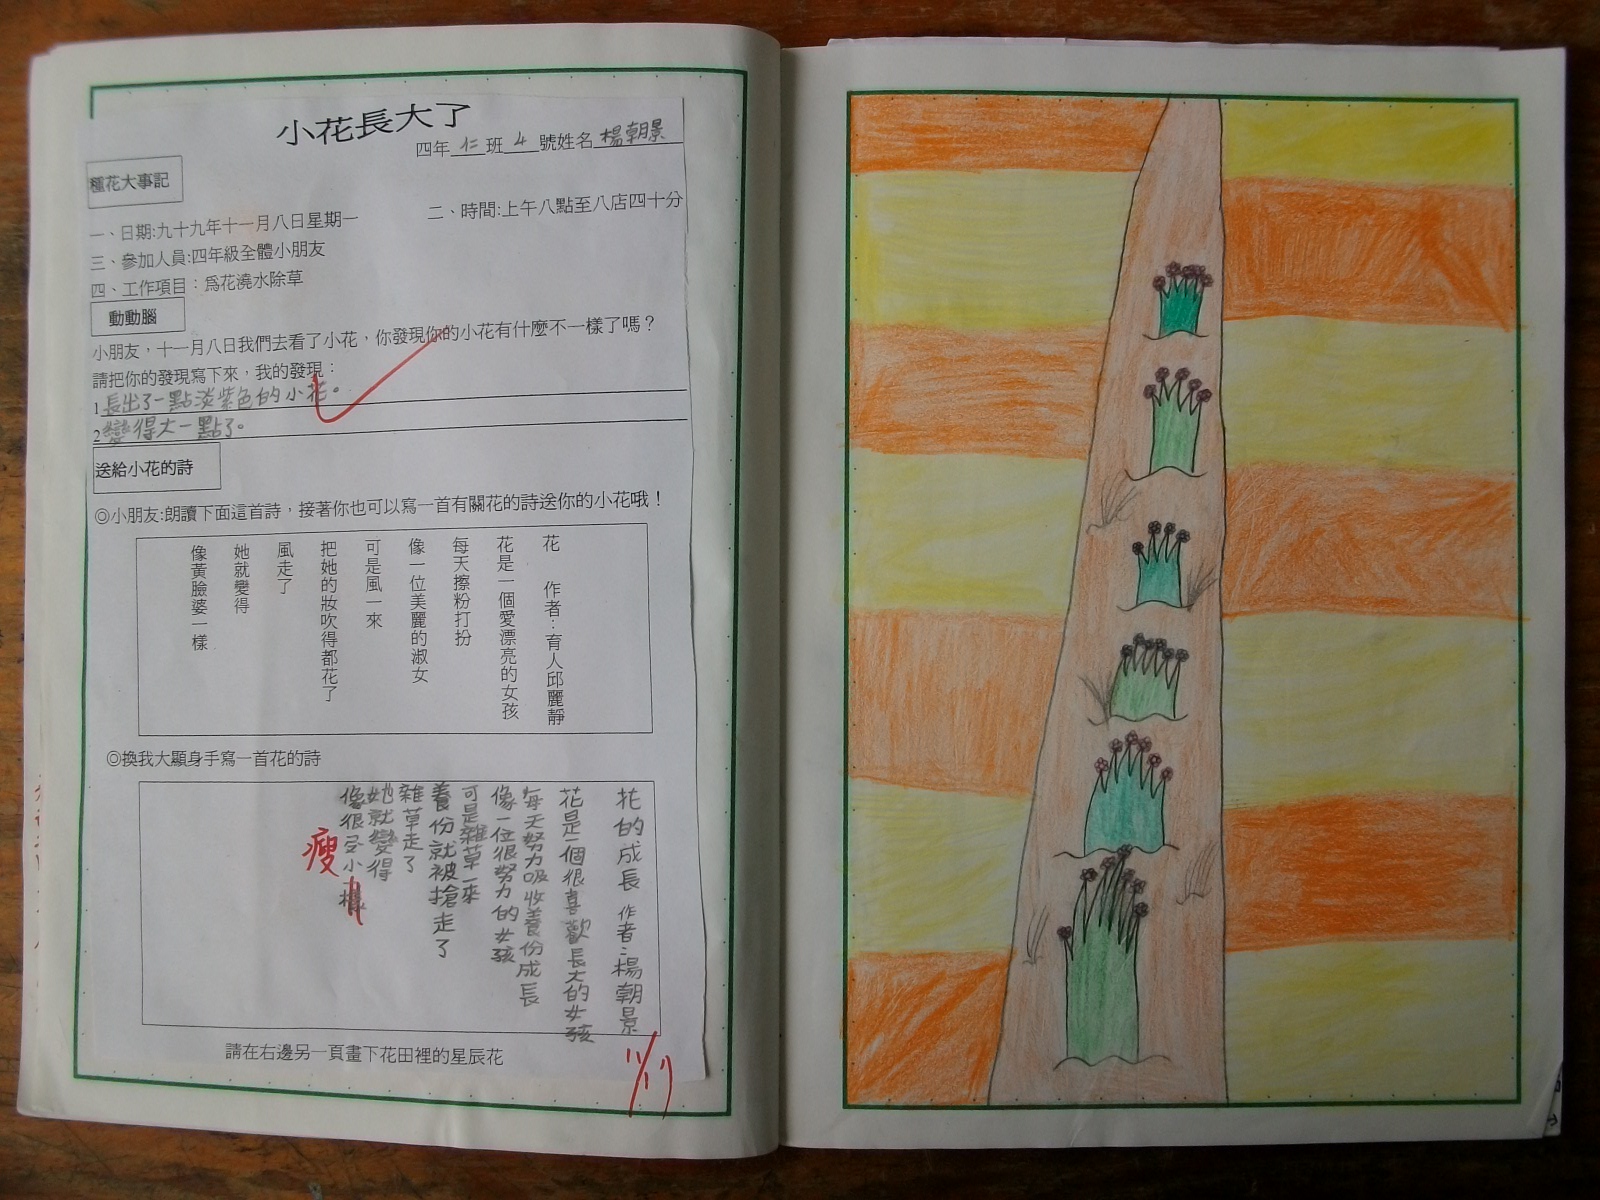 小花長大了
四年仁班4號姓名楊朝景
種花大事記
一、日期:九十九年十一月八日星期一
二、時間:上午八點至八店四十分
三、參加人員:四年級全體小朋友
四、工作項目：為花澆水除草
動動腦
小朋友，十一月八日我們去看了小花，你發現你的小花有什麼不一樣了嗎？
請把你的發現寫下來，我的發現：
1長出了一點淡紫色的小花。
2變得大一點了。
送給小花的詩
◎小朋友:朗讀下面這首詩，接著你也可以寫一首有關花的詩送你的小花哦！
花 作者：育人邱麗靜
花是一個愛漂亮的女孩
每天擦粉打扮
像一位美麗的淑女
可是風一來
把她的妝吹得都花了
風走了
她就變得
像黃臉婆一樣
◎換我大顯身手寫一首花的詩
花的成長 作者：楊朝景
花是一個很喜歡長大的女孩
每天努力吸收養份成長
像一位很努力的女孩
可是雜草一來
養份就被搶走了
雜草走了
她就變得
像很受小樣
瘦
請在右邊另一頁畫下花田裡的星辰花
11/17